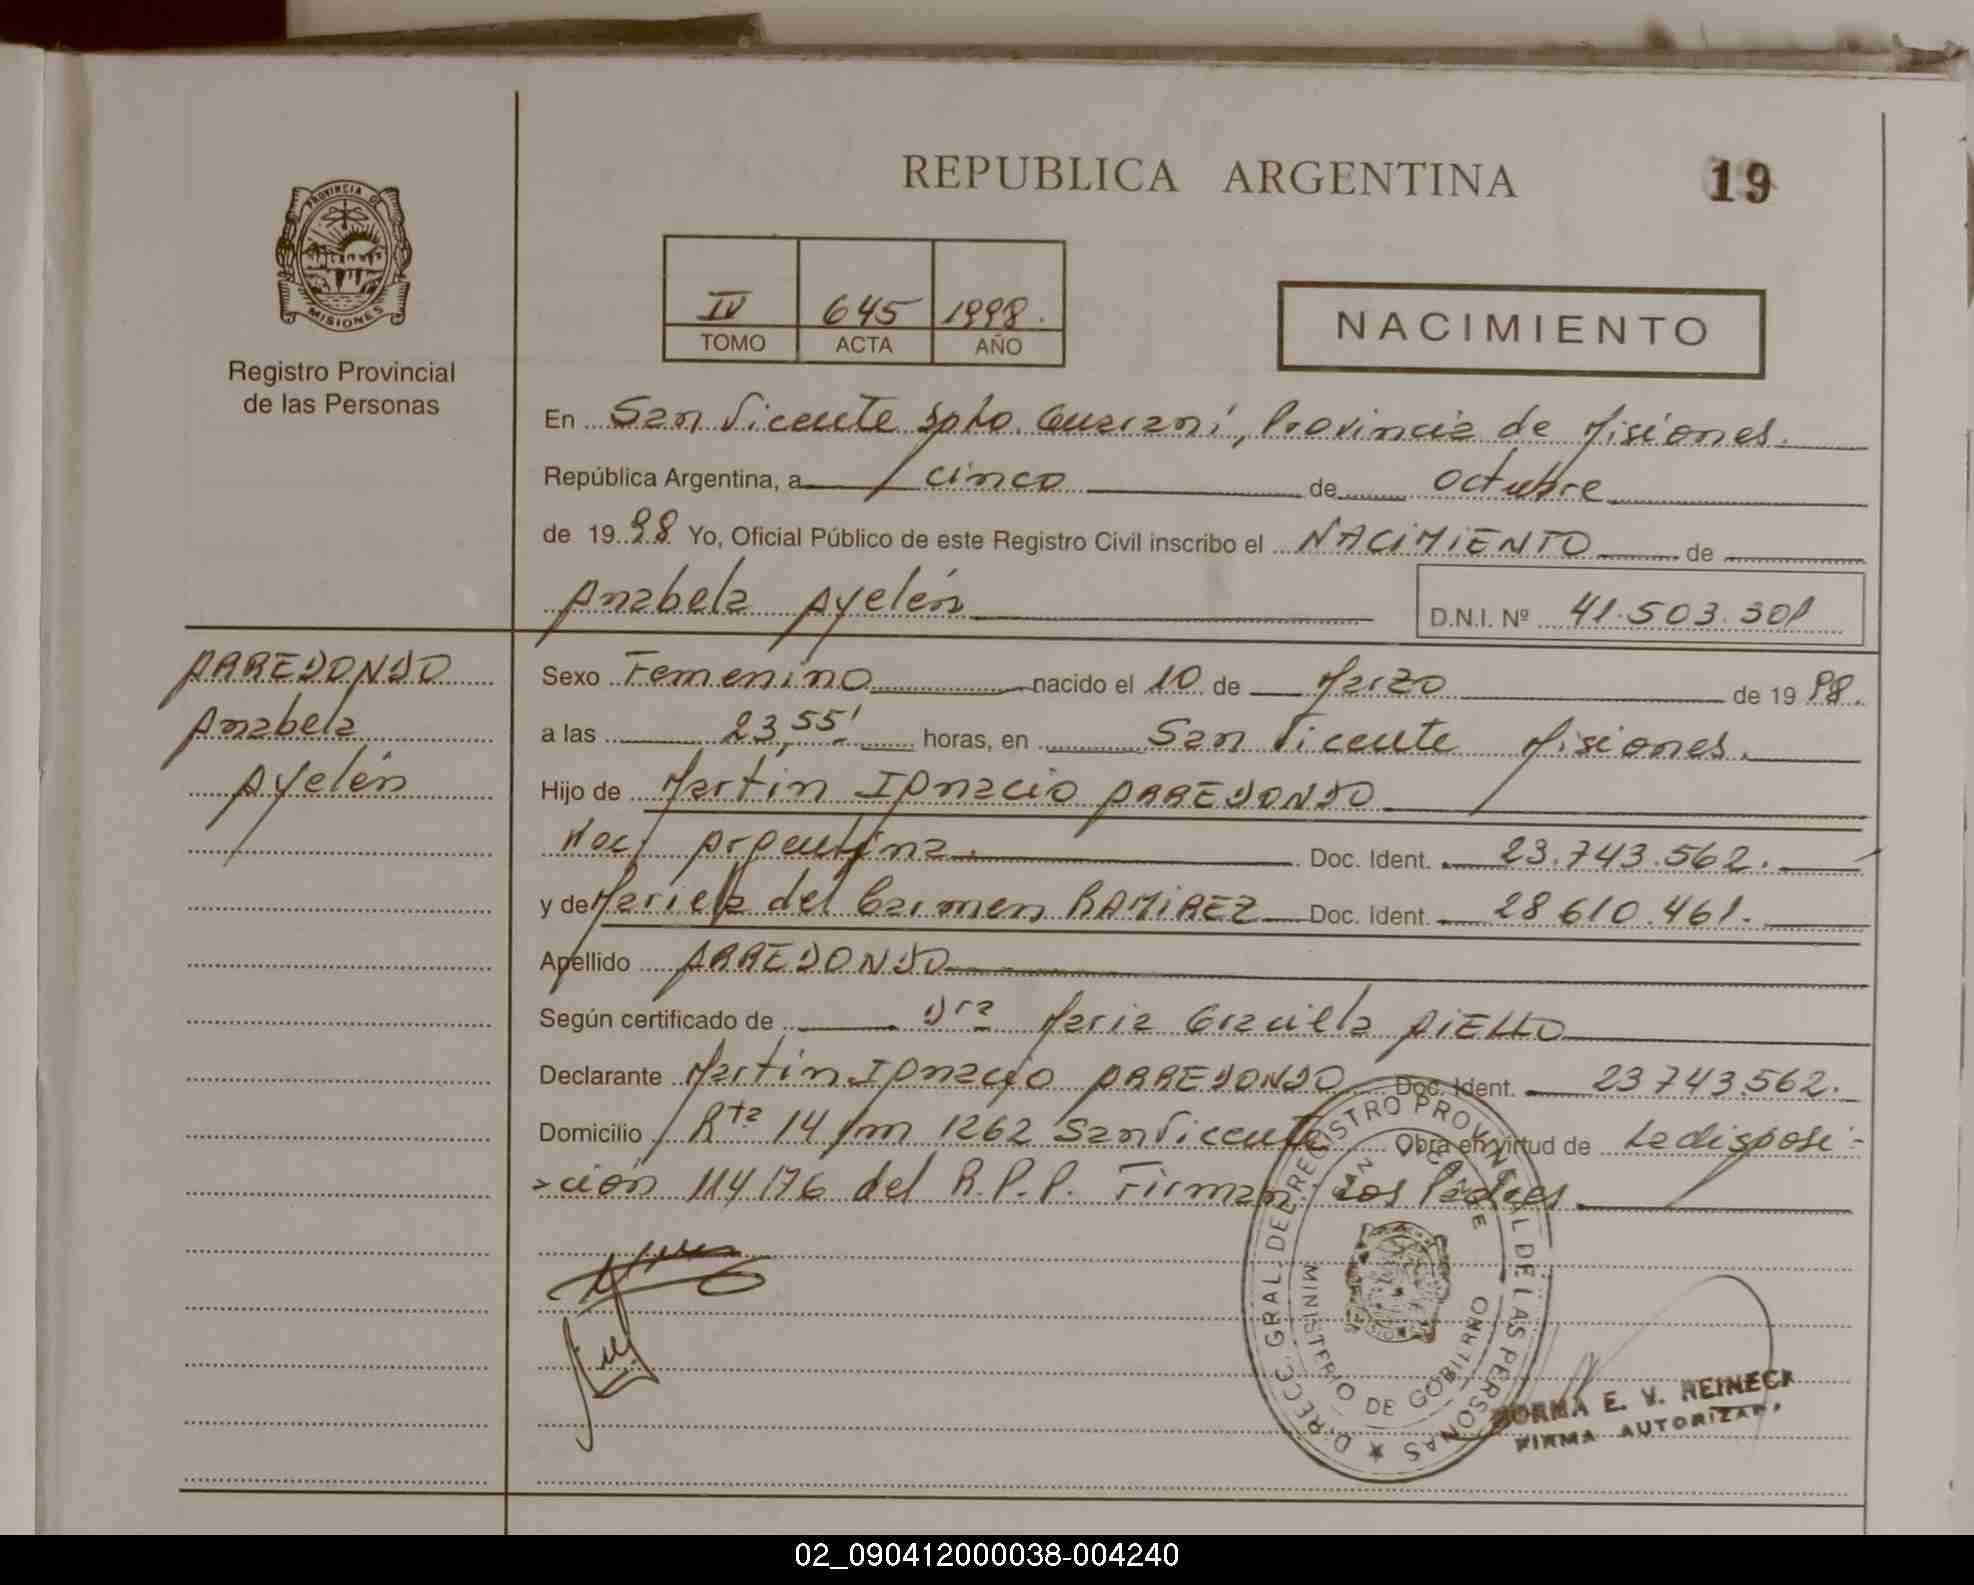 REPUBLICA ARGENTINA
19
PROVINCIA DE
MISIONES
Registro Provincial
de las Personas
IV 645 1998.
TOMO ACTA AÑO
NACIMIENTO
En San Vicente Dpto. Guaraní, Provincia de Misiones.
República Argentina, a cinco de octubre
de 1998 Yo, Oficial Público de este Registro Civil inscribo el NACIMIENTO de
Anabela Ayelén
D.N.I. Nº 41.503.301
ARREDONDO
Anabela
Ayelén
Sexo Femenino nacido el 10 de Marzo de 1998.
a las 23,55' horas, en San Vicente Misiones.
Hijo de Martin Ignacio ARREDONDO
Nac. Argentina. Doc. Ident. 23.743.562.
y de Mariela del Carmen RAMIREZ Doc. Ident. 28 610.461.
Apellido ARREDONDO
Según certificado de Dra Maria Graciela AIELLO
Declarante Martin Ignacio ARREDONDO Doc. Ident. 23 743.562.
Domicilio Rta 14 Km 1262 San Vicente Obra en virtud de La disposi-
-ción 114/76 del R.P.P. Firman Los Padres
DIRECC. GRAL. DEL REGISTRO PROVINCIAL DE LAS PERSONAS
SAN VICENTE
MINISTERIO DE GOBIERNO
NORMA E. V. REINECK
FIRMA AUTORIZADA
02_090412000038-004240